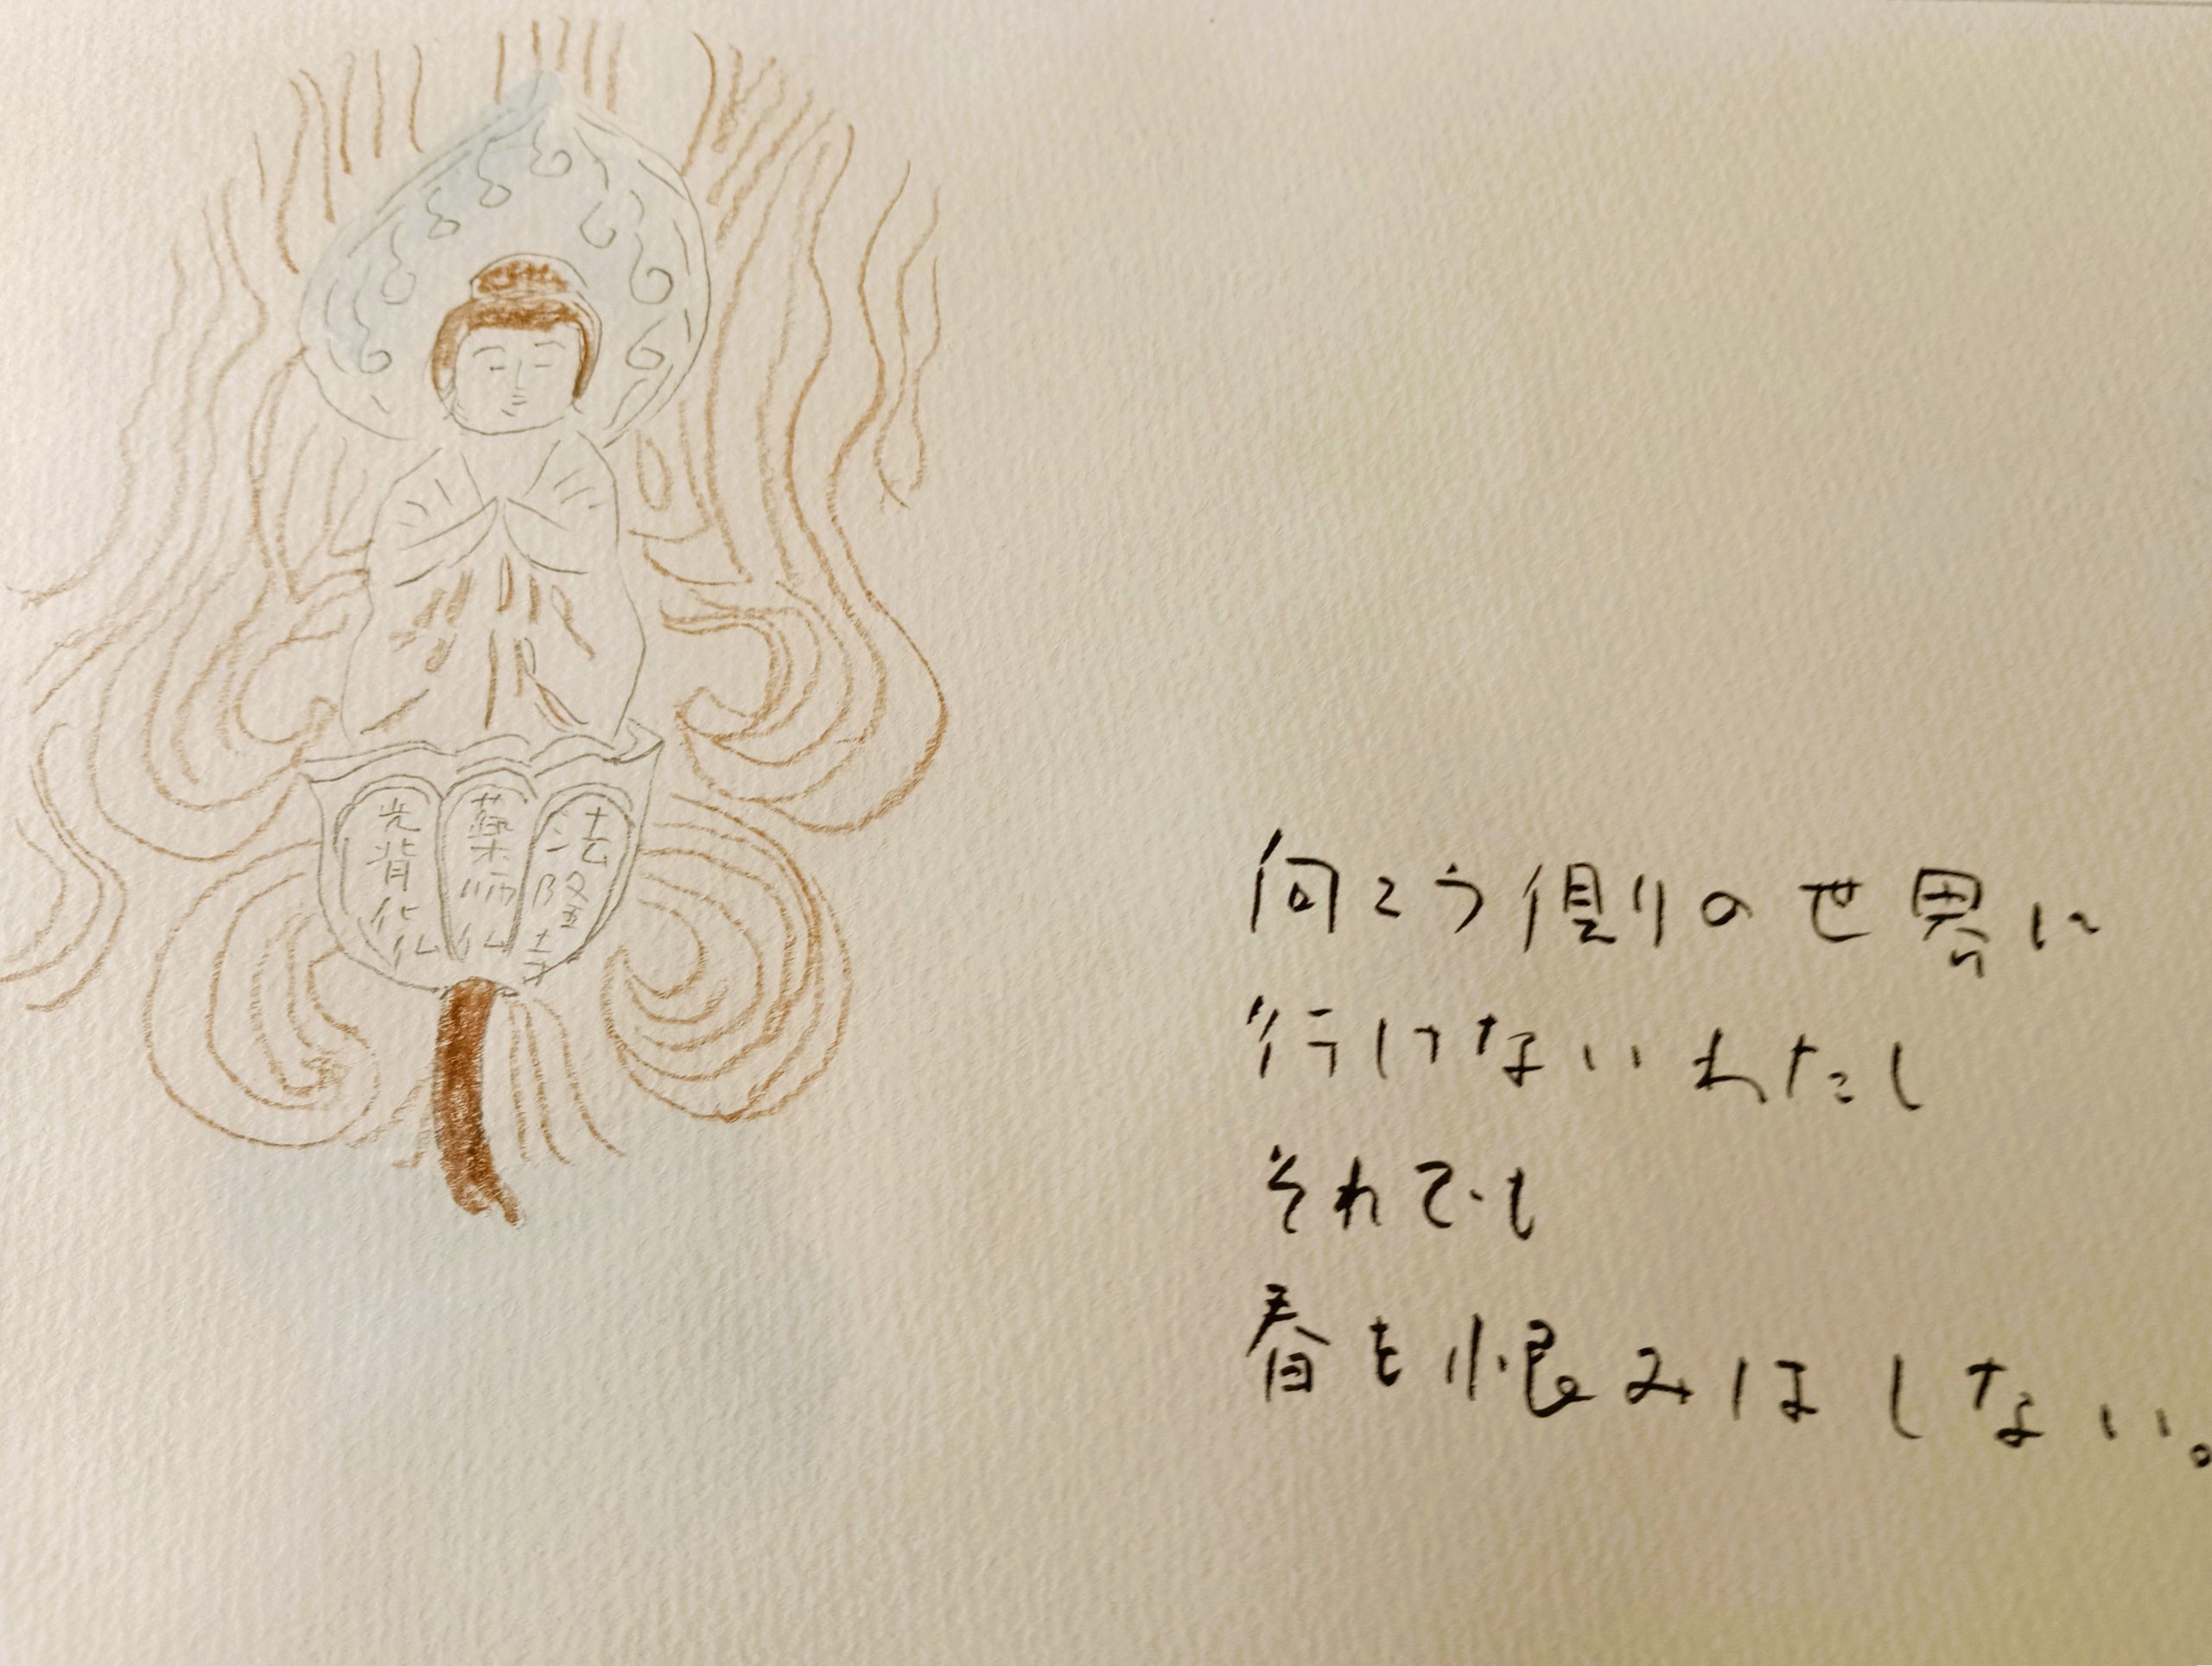 法隆寺
薬師仏
光背化仏
向こう側の世界に
行けないわたし
それでも
春を恨みはしない。